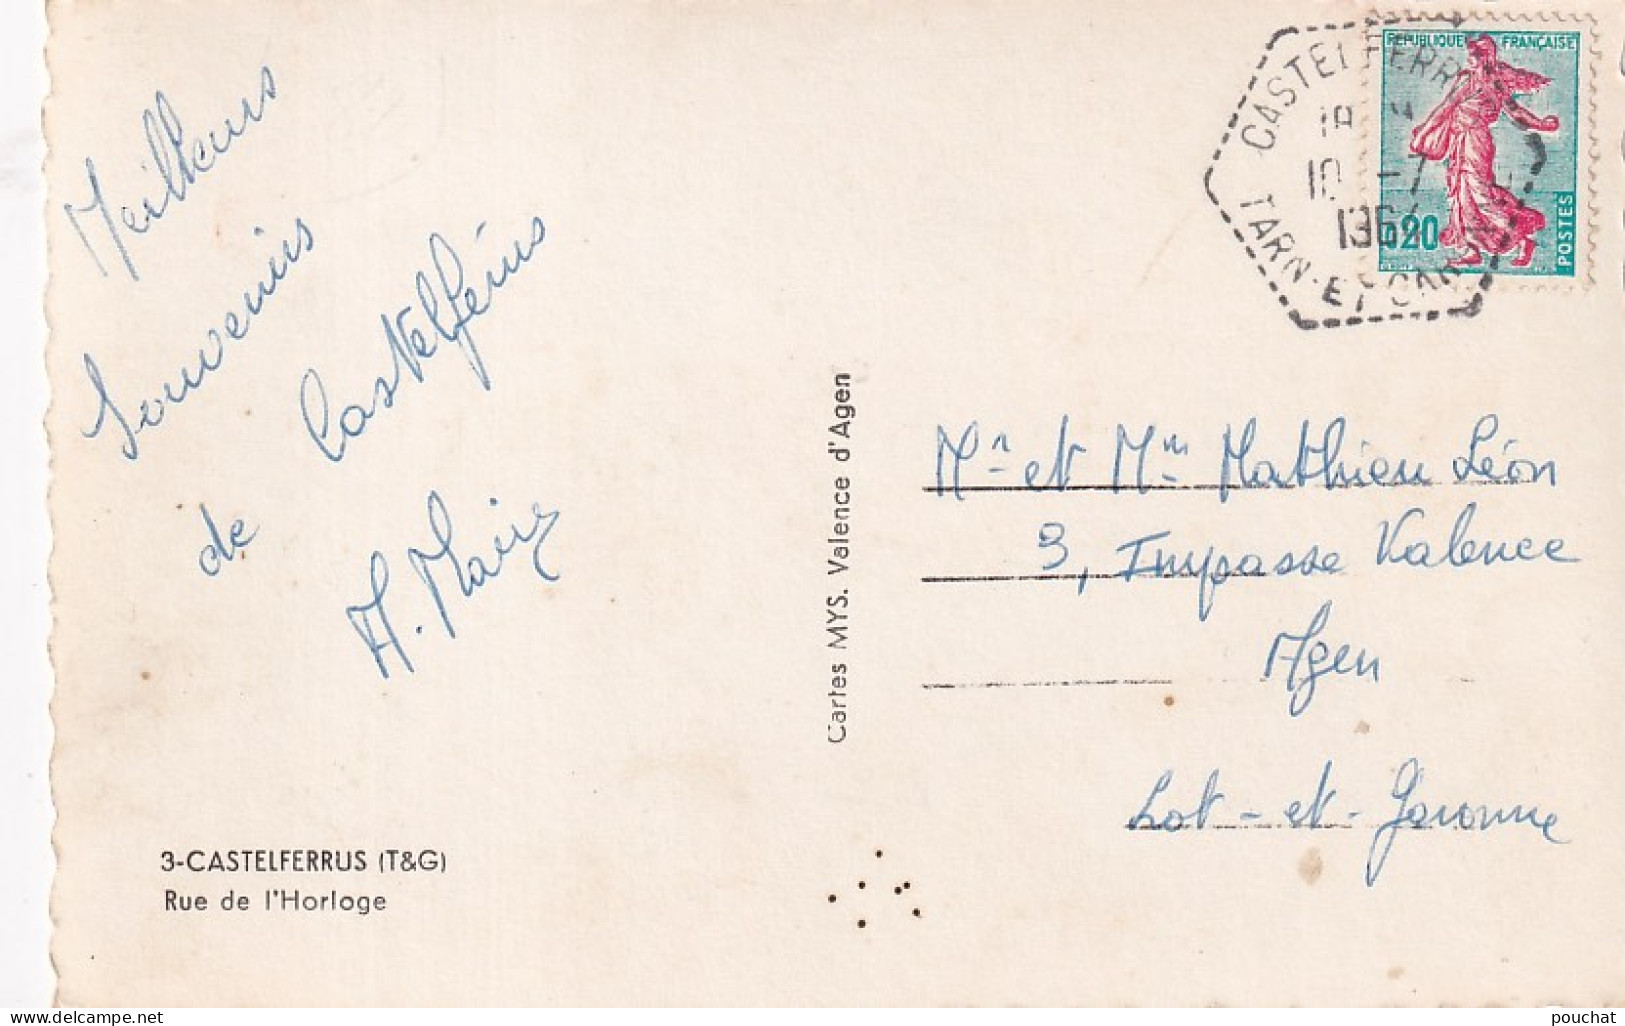 Meilleurs
Souvenirs
de Castelférus
3-CASTELFERRUS (T&G)
Rue de l'Horloge
Cartes MYS. Valence d'Agen
REPUBLIQUE FRANÇAISE
0,20
POSTES
CASTELFERRUS
18 H
10 -7
1964
TARN-ET-GARONNE
Mr et Mme Mathieu Léon
3, Impasse Valence
Agen
Lot-et-Garonne
pouchat